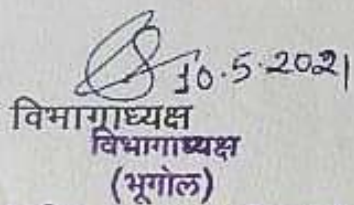 10.5.2021
विभागाध्यक्ष
विभागाध्यक्ष
(भूगोल)